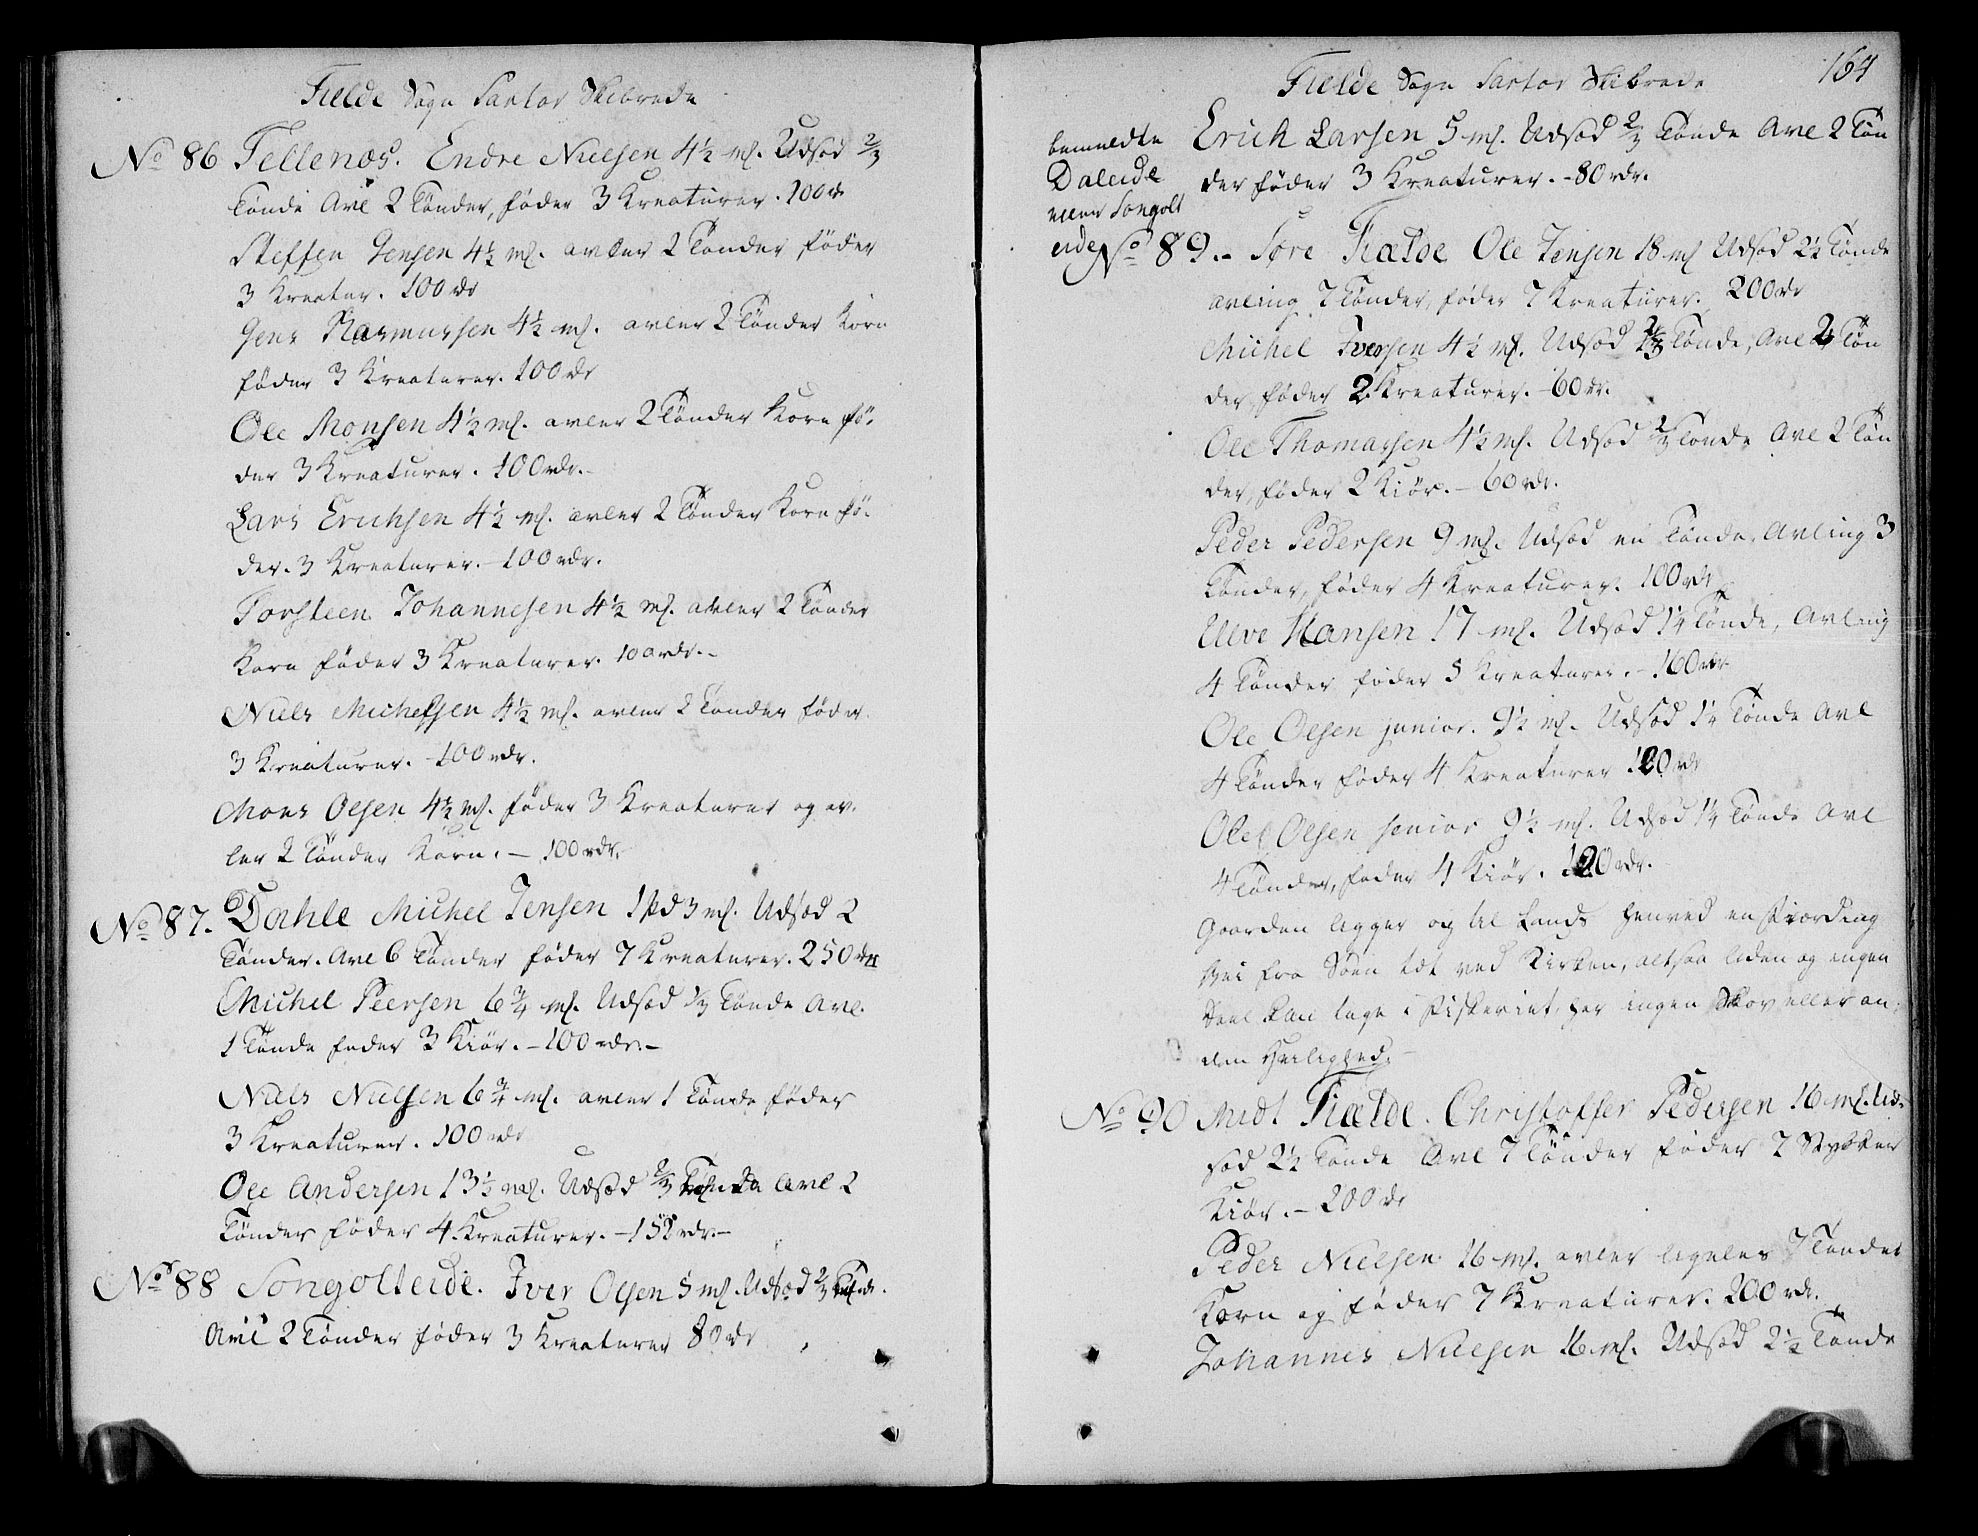 Fielde Sogn Sartor Skibrede
No 86 Tellenæs. Endre Nielsen 4½ mf. Udsæd ⅔
Tønde Avl 2 Tønder, føder 3 Kreaturer. 100 rdr
Steffen Jensen 4½ mf. avler 2 Tønder føder
3 Kreatur. 100 rdr
Jens Rasmussen 4½ mf. avler 2 Tønder Korn
føder 3 Kreaturer. 100 rdr
Ole Monsen 4½ mf. avler 2 Tønder Korn fø-
der 3 Kreaturer. 100 rdr.-
Lars Erichsen 4½ mf. avler 2 Tønder Korn fø-
der. 3 Kreaturer. 100 rdr.
Torsteen Johannesen 4½ mf. avler 2 Tønder
Korn føder 3 Kreaturer. 100 rdr.-
Niels Michelsen 4½ mf. avler 2 Tønder føder
3 Kreaturer. 100 rdr.
Mons Olsen 4½ mf. føder 3 Kreaturer og av-
ler 2 Tønder Korn. - 100 rdr.
No 87. Dahle Michel Jensen 1 pd 3 mf. Udsæd 2
Tønder. Avl 6 Tønder føder 7 Kreaturer. 250 rdr
Michel Peersen 6¾ mf. Udsæd ⅓ Tønde Avl.
1 Tønde føder 3 Kiør. - 100 rdr.-
Niels Nielsen 6¾ mf. avler 1 Tønde føder
3 Kreaturer. 100 rdr
Ole Andersen 13½ mf. Udsæd ⅔ Tønde Avl 2
Tønder føder 4 Kreaturer. - 151 rdr.-
No 88 Songolteide. Iver Olsen 5 mf. Udsæd ⅔ Tønde.
Avl 2 Tønder føder 3 Kreaturer 80 rdr
164
Fielde Sogn Sartor Skibrede
bemeldte
Daleide
eller Songolt
eide
Erich Larsen 5 mf. Udsæd ⅔ Tønde Avl 2 Tøn
der føder 3 Kreaturer. - 80 rdr.
No 89.- Søre Fiælde Ole Jensen 18 mf Udsæd 2½ Tønde
avling 7 Tønder, føder 7 Kreaturer. 200 rdr
Michel Iversen 4½ mf. Udsæd ⅔ Tønde, Avl 2 Tøn
der, føder 2 Kreaturer. - 60 rdr.
Ole Thomassen 4½ mf. Udsæd ⅔ Tønde Avl 2 Tøn
der, føder 2 Kiør. - 60 rdr.
Peder Pedersen 9 mf. Udsæd en Tønde, Avling 3
Tønder, føder 4 Kreaturer. 100 rdr
Elleve Hansen 17 mf. Udsæd 1¼ Tønde, Avling
4 Tønder føder 5 Kreaturer. - 160 rdr.
Ole Olsen junior. 9½ mf. Udsæd 1¼ Tønde Avl
4 Tønder føder 4 Kreaturer 120 rdr
Ole Olsen senior 9½ mf. Udsæd 1¼ Tønde Avl
4 Tønder, føder 4 Kiør. 120 rdr.
Gaarden ligger og til Lands henved en Fiærding
Vei fra Søen tæt ved Kirken, altsaa liden og ingen
Deel kan tage i Fiskeriet, har ingen Skov eller an-
den Herlighed.-
No 90 Midt Fiælde. Christoffer Pedersen 16 mf. Ud-
sæd 2½ Tønde Avl 7 Tønder føder 7 Stykker
Kiør. - 200 rdr
Peder Nielsen 16 mf. avler ligeles 7 Tønder
Korn og føder 7 Kreaturer. 200 rdr.
Johannes Nielsen 16 mf. Udsæd 2½ Tønde